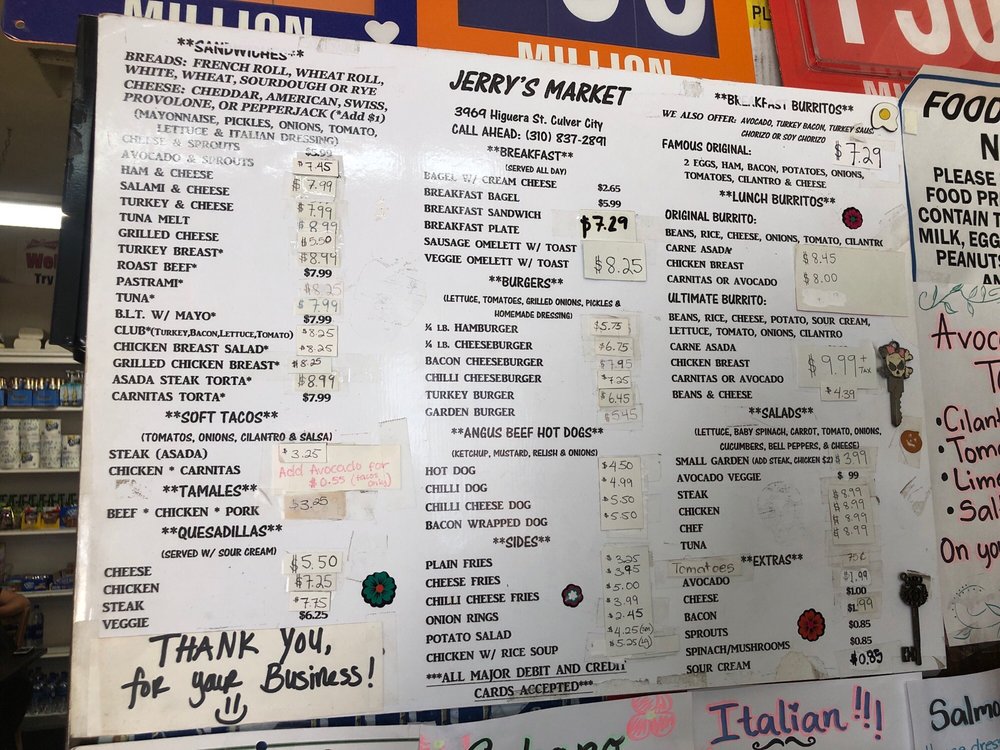 MILLION
MILLION
**SANDWICHES**
BREADS: FRENCH ROLL, WHEAT ROLL,
WHITE, WHEAT, SOURDOUGH OR RYE
CHEESE: CHEDDAR, AMERICAN, SWISS,
PROVOLONE, OR PEPPERJACK (*Add $1)
(MAYONNAISE, PICKLES, ONIONS, TOMATO,
LETTUCE & ITALIAN DRESSING)
CHEESE & SPROUTS $5.99
AVOCADO & SPROUTS $7.45
HAM & CHEESE $7.99
SALAMI & CHEESE $7.99
TURKEY & CHEESE $8.99
TUNA MELT $5.50
GRILLED CHEESE $8.99
TURKEY BREAST* $7.99
ROAST BEEF* $8.25
PASTRAMI* $7.99
TUNA* $7.99
B.L.T. W/ MAYO*
CLUB*(TURKEY,BACON,LETTUCE,TOMATO) $8.25
CHICKEN BREAST SALAD* $8.25
GRILLED CHICKEN BREAST* $8.25
ASADA STEAK TORTA* $8.99
CARNITAS TORTA* $7.99
**SOFT TACOS**
(TOMATOS, ONIONS, CILANTRO & SALSA)
STEAK (ASADA) $3.25
CHICKEN * CARNITAS
Add Avocado for
$0.55 (tacos only)
**TAMALES**
BEEF * CHICKEN * PORK $3.25
**QUESADILLAS**
(SERVED W/ SOUR CREAM)
CHEESE $5.50
CHICKEN $7.25
STEAK $7.75
VEGGIE $6.25
THANK YOU,
for your Business!
JERRY'S MARKET
3969 Higuera St. Culver City
CALL AHEAD: (310) 837-2891
**BREAKFAST**
(SERVED ALL DAY)
BAGEL W/ CREAM CHEESE $2.65
BREAKFAST BAGEL $5.99
BREAKFAST SANDWICH $7.29
BREAKFAST PLATE
SAUSAGE OMELETT W/ TOAST $8.25
VEGGIE OMELETT W/ TOAST
**BURGERS**
(LETTUCE, TOMATOES, GRILLED ONIONS, PICKLES &
HOMEMADE DRESSING)
¼ LB. HAMBURGER $5.75
¼ LB. CHEESEBURGER $6.75
BACON CHEESEBURGER $7.95
CHILLI CHEESEBURGER $7.25
TURKEY BURGER $6.45
GARDEN BURGER $5.45
**ANGUS BEEF HOT DOGS**
(KETCHUP, MUSTARD, RELISH & ONIONS)
HOT DOG $4.50
CHILLI DOG $4.99
CHILLI CHEESE DOG $5.50
BACON WRAPPED DOG $5.50
**SIDES**
PLAIN FRIES $3.25
CHEESE FRIES $3.95
CHILLI CHEESE FRIES $5.00
ONION RINGS $3.99
POTATO SALAD $2.45
CHICKEN W/ RICE SOUP $4.25 (sm)
$5.25 (lg)
***ALL MAJOR DEBIT AND CREDIT
CARDS ACCEPTED***
**BREAKFAST BURRITOS**
WE ALSO OFFER: AVOCADO, TURKEY BACON, TURKEY SAUS
CHORIZO OR SOY CHORIZO
FAMOUS ORIGINAL: $7.29
2 EGGS, HAM, BACON, POTATOES, ONIONS,
TOMATOES, CILANTRO & CHEESE
**LUNCH BURRITOS**
ORIGINAL BURRITO:
BEANS, RICE, CHEESE, ONIONS, TOMATO, CILANTRO
CARNE ASADA $8.45
CHICKEN BREAST $8.00
CARNITAS OR AVOCADO
ULTIMATE BURRITO:
BEANS, RICE, CHEESE, POTATO, SOUR CREAM,
LETTUCE, TOMATO, ONIONS, CILANTRO
CARNE ASADA
CHICKEN BREAST $9.99 + TAX
CARNITAS OR AVOCADO
BEANS & CHEESE $4.39
**SALADS**
(LETTUCE, BABY SPINACH, CARROT, TOMATO, ONIONS,
CUCUMBERS, BELL PEPPERS, & CHEESE)
SMALL GARDEN (ADD STEAK, CHICKEN $2) $3.99
AVOCADO VEGGIE 99
STEAK $8.99
CHICKEN $8.99
CHEF $8.99
TUNA $8.99
**EXTRAS**
Tomatoes 75¢
AVOCADO $1.99
CHEESE $1.00
BACON $1.99
SPROUTS $0.85
SPINACH/MUSHROOMS $0.85
SOUR CREAM $0.85
FOOD
PLEASE
FOOD PR
CONTAIN T
MILK, EGG
PEANUTS
Avoc
•Cilan
•Tomo
•Lime
•Sal
On yo
Italian!!!
Salmo